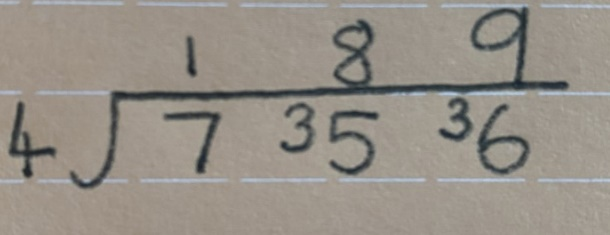 1 8 9
4 7 35 36